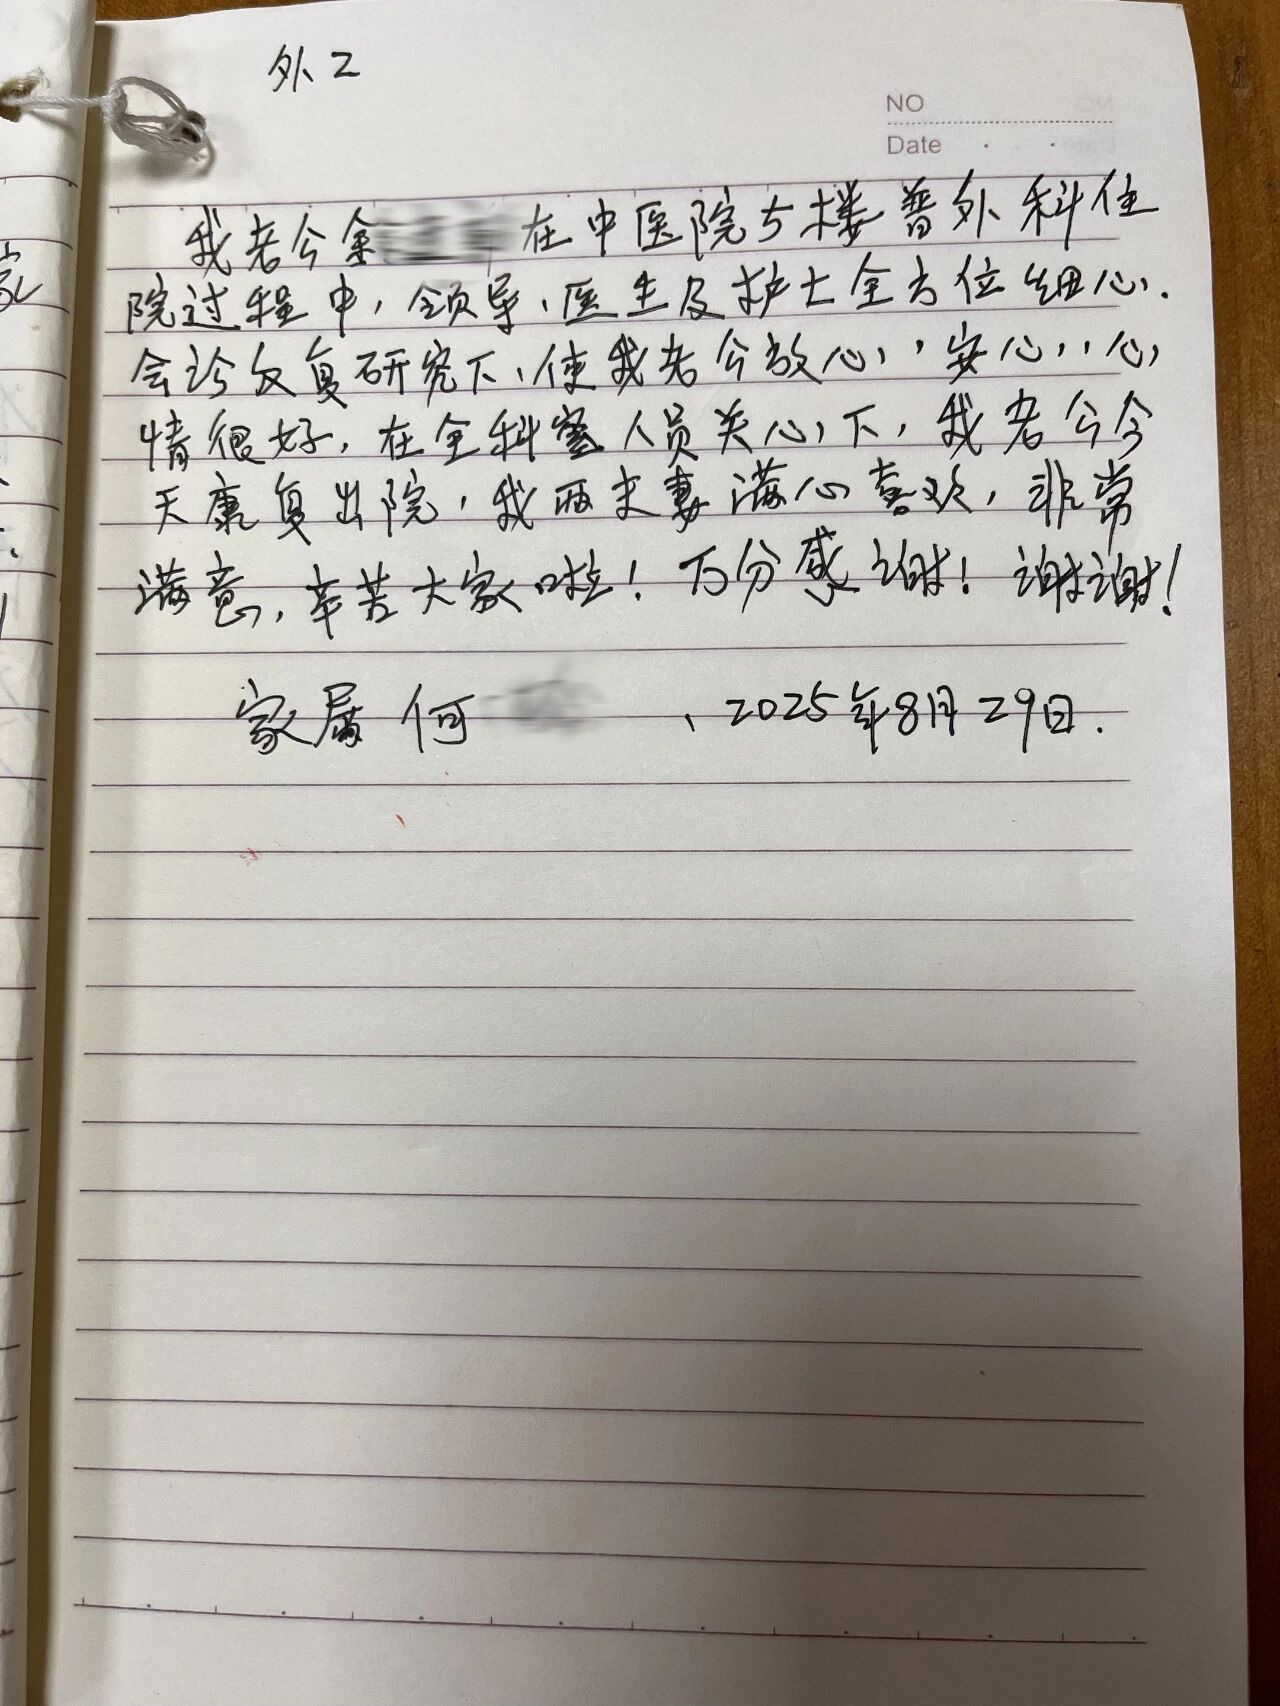 外2
NO
Date
我老公金在中医院5楼普外科住
院过程中,领导、医生及护士全方位细心.
会诊反复研究下、使我老公放心,安心,心
情很好,在全科室人员关心下,我老公今
天康复出院,我两夫妻满心喜欢,非常
满意,辛苦大家啦!万分感谢!谢谢!
家属何、2025年8月29日.